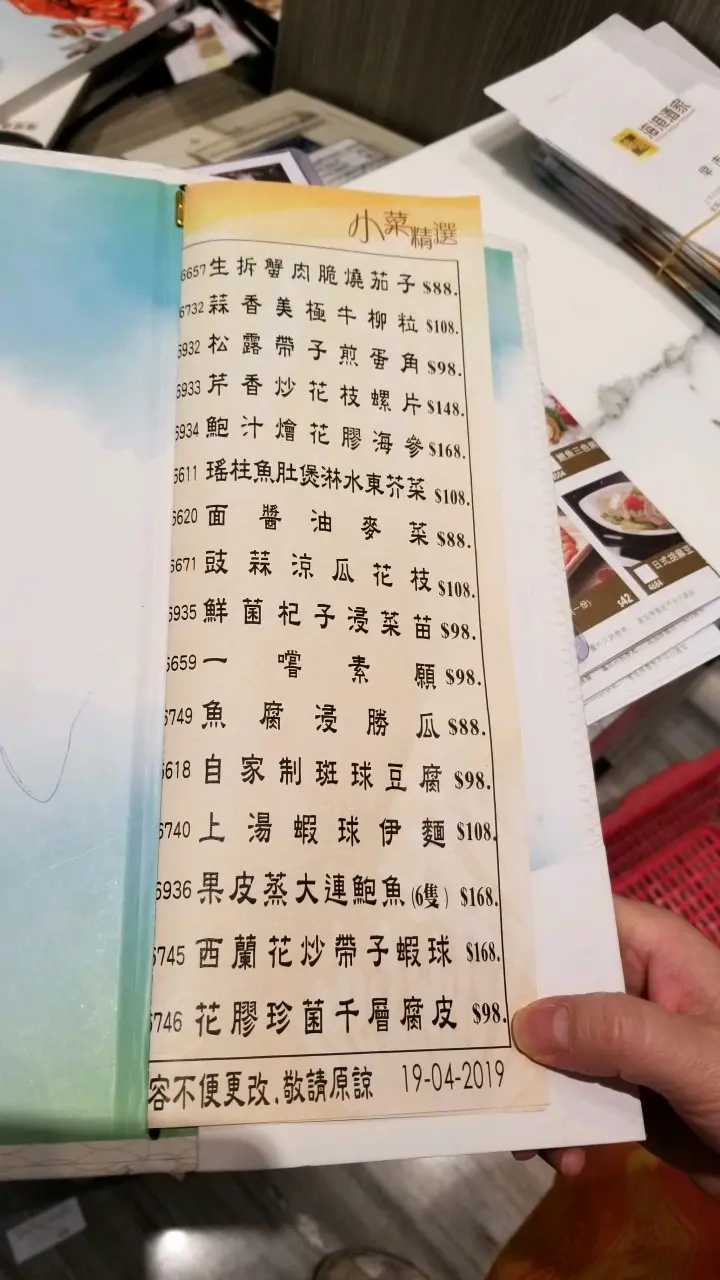 小菜精選
6657 生拆蟹肉脆燒茄子 $88.
6732 蒜香美極牛柳粒 $108.
6932 松露帶子煎蛋角 $98.
6933 芹香炒花枝螺片 $148.
6934 鮑汁燴花膠海參 $168.
6611 瑤柱魚肚煲淋水東芥菜 $108.
6620 面醬油麥菜 $88.
6671 豉蒜涼瓜花枝 $108.
6935 鮮菌杞子浸菜苗 $98.
6659 一嚐素願 $98.
6749 魚腐浸勝瓜 $88.
6618 自家制斑球豆腐 $98.
6740 上湯蝦球伊麵 $108.
6936 果皮蒸大連鮑魚(6隻) $168.
6745 西蘭花炒帶子蝦球 $168.
6746 花膠珍菌千層腐皮 $98.
容不便更改.敬請原諒 19-04-2019
$42